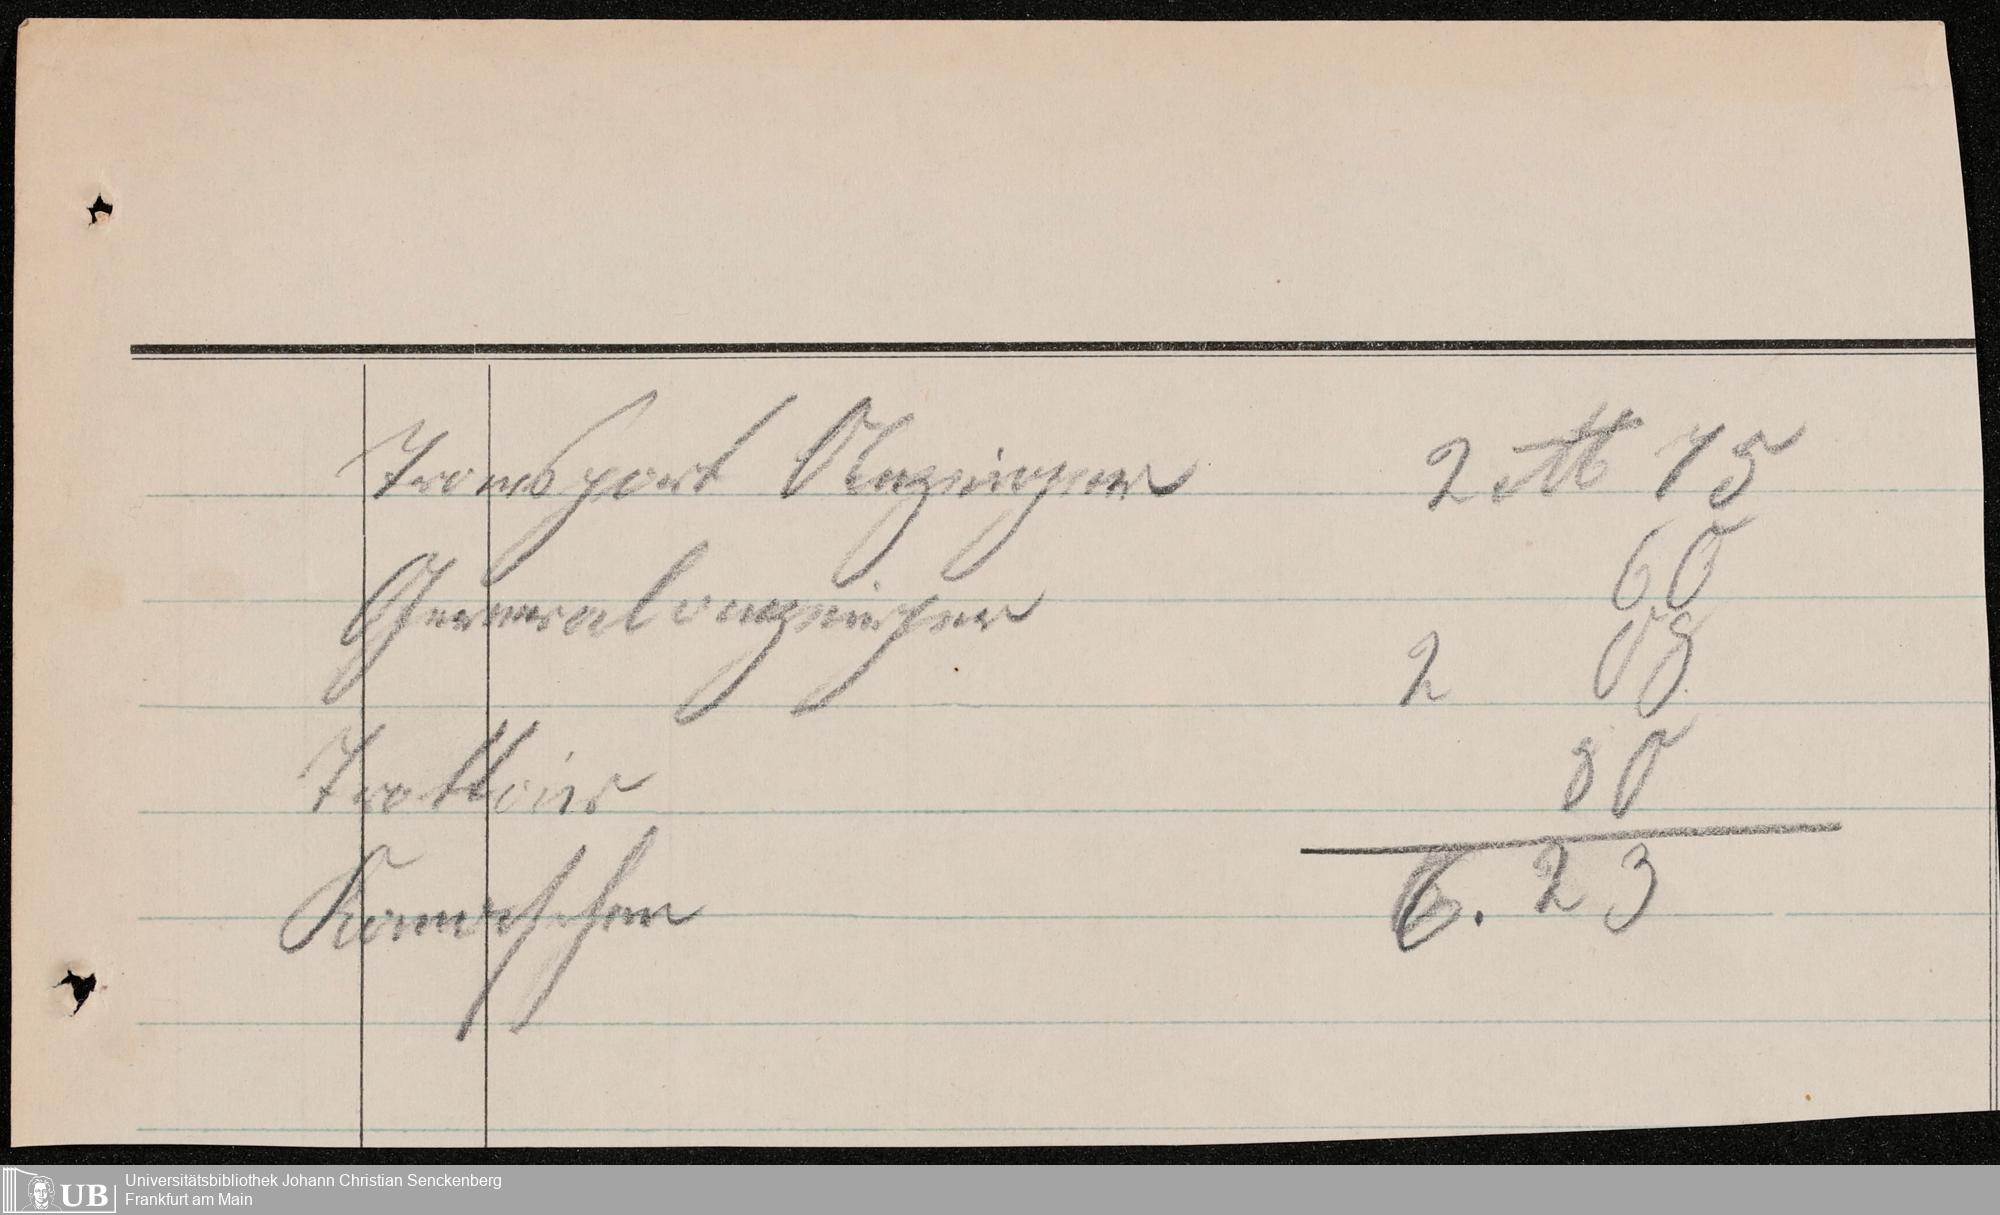 Transport Anzeiger 2 M 75
60
Generalanzeiger
2 08
Trottoir 80
6.23
Universitätsbibliothek Johann Christian Senckenberg
UB
Frankfurt am Main